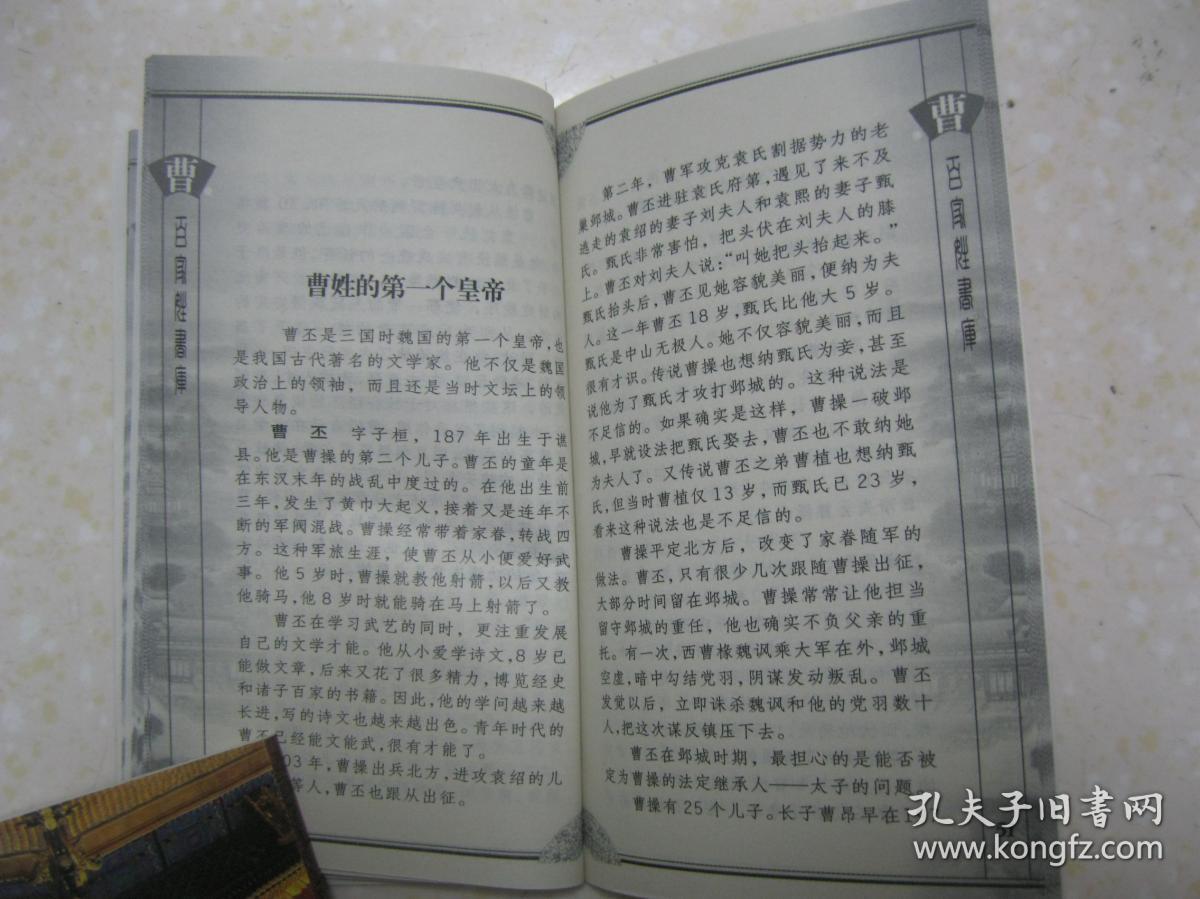 曹
百家姓書庫
曹姓的第一个皇帝
曹丕是三国时魏国的第一个皇帝，也
是我国古代著名的文学家。他不仅是魏国
政治上的领袖，而且还是当时文坛上的领
导人物。
曹丕 字子桓，187年出生于谯
县。他是曹操的第二个儿子。曹丕的童年是
在东汉末年的战乱中度过的。在他出生前
三年，发生了黄巾大起义，接着又是连年不
断的军阀混战。曹操经常带着家眷，转战四
方。这种军旅生涯，使曹丕从小便爱好武
事。他5岁时，曹操就教他射箭，以后又教
他骑马，他8岁时就能骑在马上射箭了。
曹丕在学习武艺的同时，更注重发展
自己的文学才能。他从小爱学诗文，8岁已
能做文章，后来又花了很多精力，博览经史
和诸子百家的书籍。因此，他的学问越来越
长进，写的诗文也越来越出色。青年时代的
曹丕已经能文能武，很有才能了。
03年，曹操出兵北方，进攻袁绍的儿
等人，曹丕也跟从出征。
第二年，曹军攻克袁氏割据势力的老
巢邺城。曹丕进驻袁氏府第，遇见了来不及
逃走的袁绍的妻子刘夫人和袁熙的妻子甄
氏。甄氏非常害怕，把头伏在刘夫人的膝
上。曹丕对刘夫人说：“叫她把头抬起来。”
甄氏抬头后，曹丕见她容貌美丽，便纳为夫
人。这一年曹丕18岁，甄氏比他大5岁。
甄氏是中山无极人。她不仅容貌美丽，而且
很有才识。传说曹操也想纳甄氏为妾，甚至
说他为了甄氏才攻打邺城的。这种说法是
不足信的。如果确实是这样，曹操一破邺
城，早就设法把甄氏娶去，曹丕也不敢纳她
为夫人了。又传说曹丕之弟曹植也想纳甄
氏，但当时曹植仅13岁，而甄氏已23岁，
看来这种说法也是不足信的。
曹操平定北方后，改变了家眷随军的
做法。曹丕，只有很少几次跟随曹操出征，
大部分时间留在邺城。曹操常常让他担当
留守邺城的重任，他也确实不负父亲的重
托。有一次，西曹椽魏讽乘大军在外，邺城
空虚，暗中勾结党羽，阴谋发动叛乱。曹丕
发觉以后，立即诛杀魏讽和他的党羽数十
人，把这次谋反镇压下去。
曹丕在邺城时期，最担心的是能否被
定为曹操的法定继承人——太子的问题。
曹操有25个儿子。长子曹昂早在
曹
百家姓書庫
孔夫子旧书网
www.kongfz.com